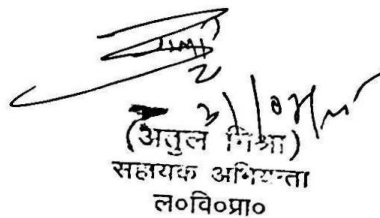 (अतुल मिश्रा)
सहायक अभियन्ता
ल०वि०प्रा०